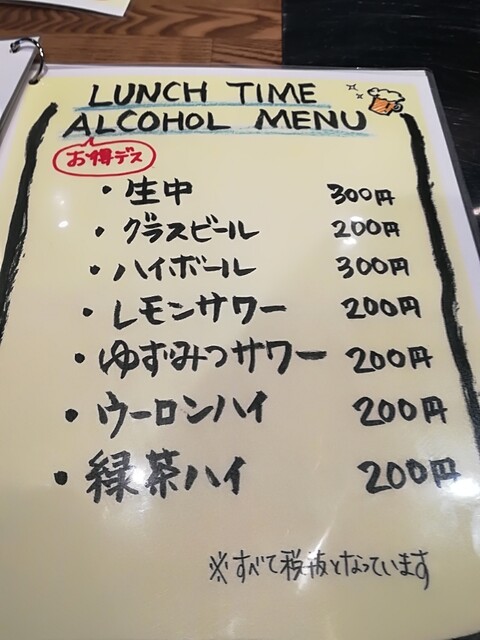 LUNCH TIME
ALCOHOL MENU
お得デス
・生中 300円
・グラスビール 200円
・ハイボール 300円
・レモンサワー 200円
・ゆずみつサワー 200円
・ウーロンハイ 200円
・緑茶ハイ 200円
※すべて税抜となっています